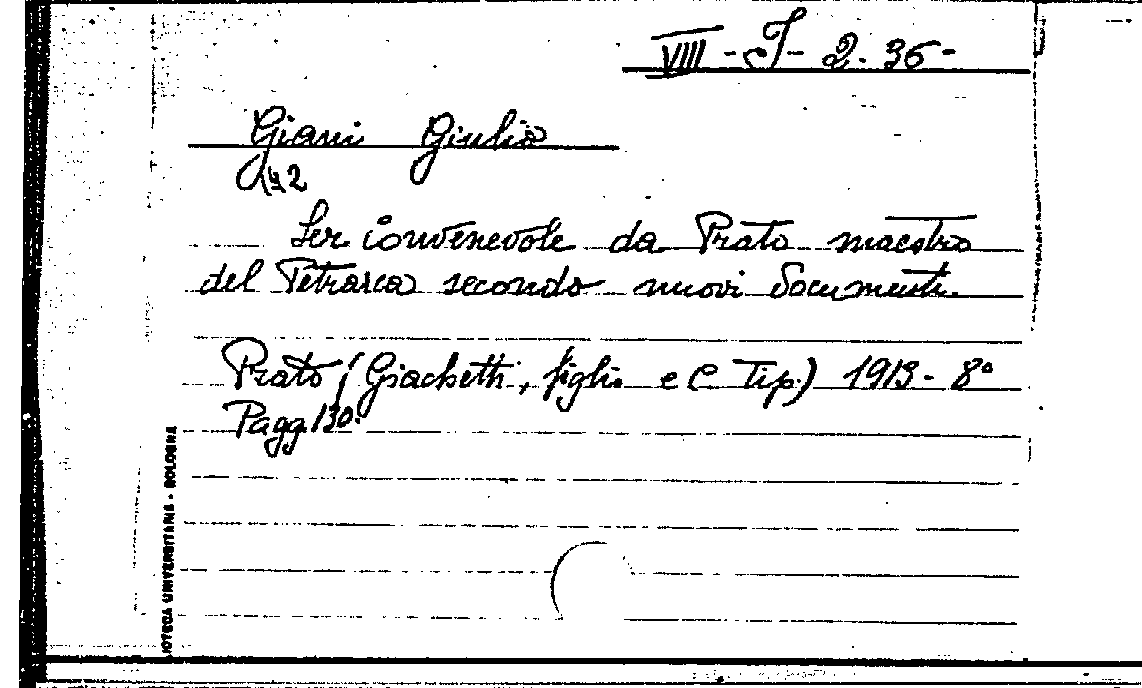 VIII - J - 2. 36 -
Giani Giulio
Ser Convenevole da Prato maestro
del Petrarca secondo nuovi documenti.
Prato (Giachetti, figlio e C Tip.) 1913 - 8º
Pagg. 130.
IOTECA UNIVERSITARIA - BOLOGNA